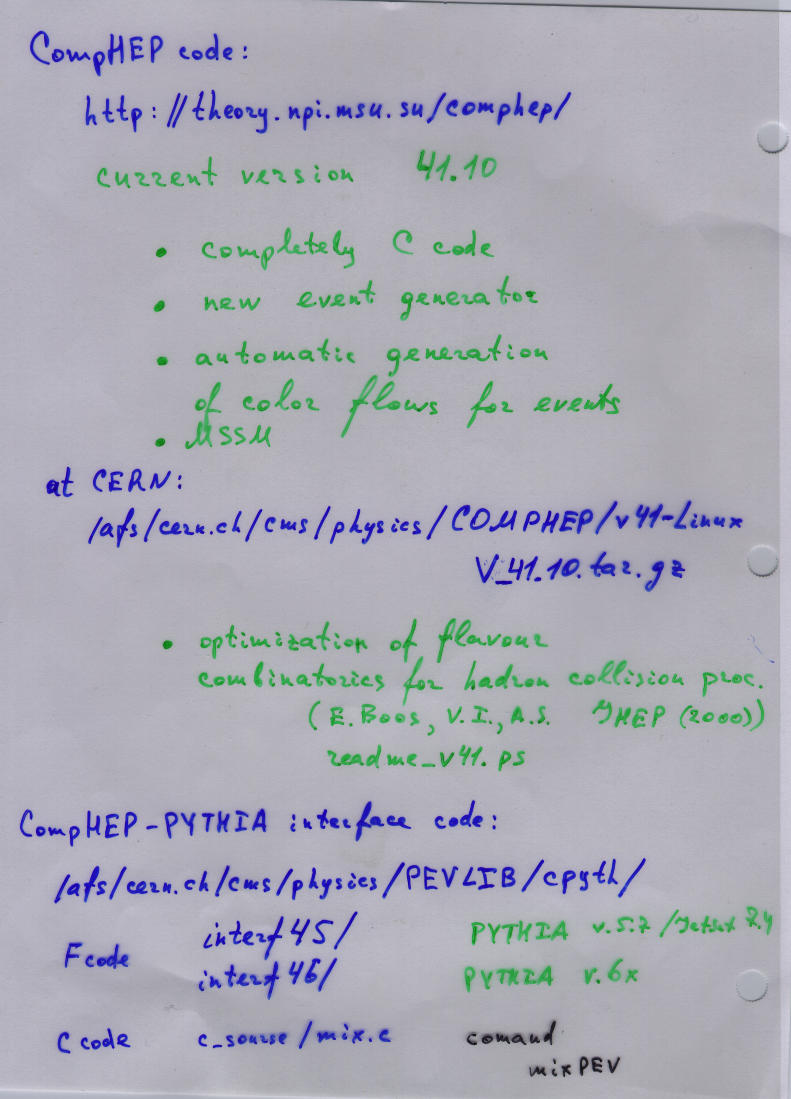 CompHEP code:
http://theory.npi.msu.su/comphep/
current version 41.10
• completely C code
• new event generator
• automatic generation
of color flows for events
• MSSM
at CERN:
/afs/cern.ch/cms/physics/COMPHEP/v41-Linux
V_41.10.tar.gz
• optimization of flavour
combinatorics for hadron collision proc.
(E. Boos, V. I., A.S. JHEP (2000))
readme_v41.ps
CompHEP-PYTHIA interface code:
/afs/cern.ch/cms/physics/PEVLIB/cpyth/
F code interf45/ PYTHIA v.5.7/Jetset 7.4
interf46/ PYTHIA v.6x
C code c_sourse/mix.c comand
mixPEV